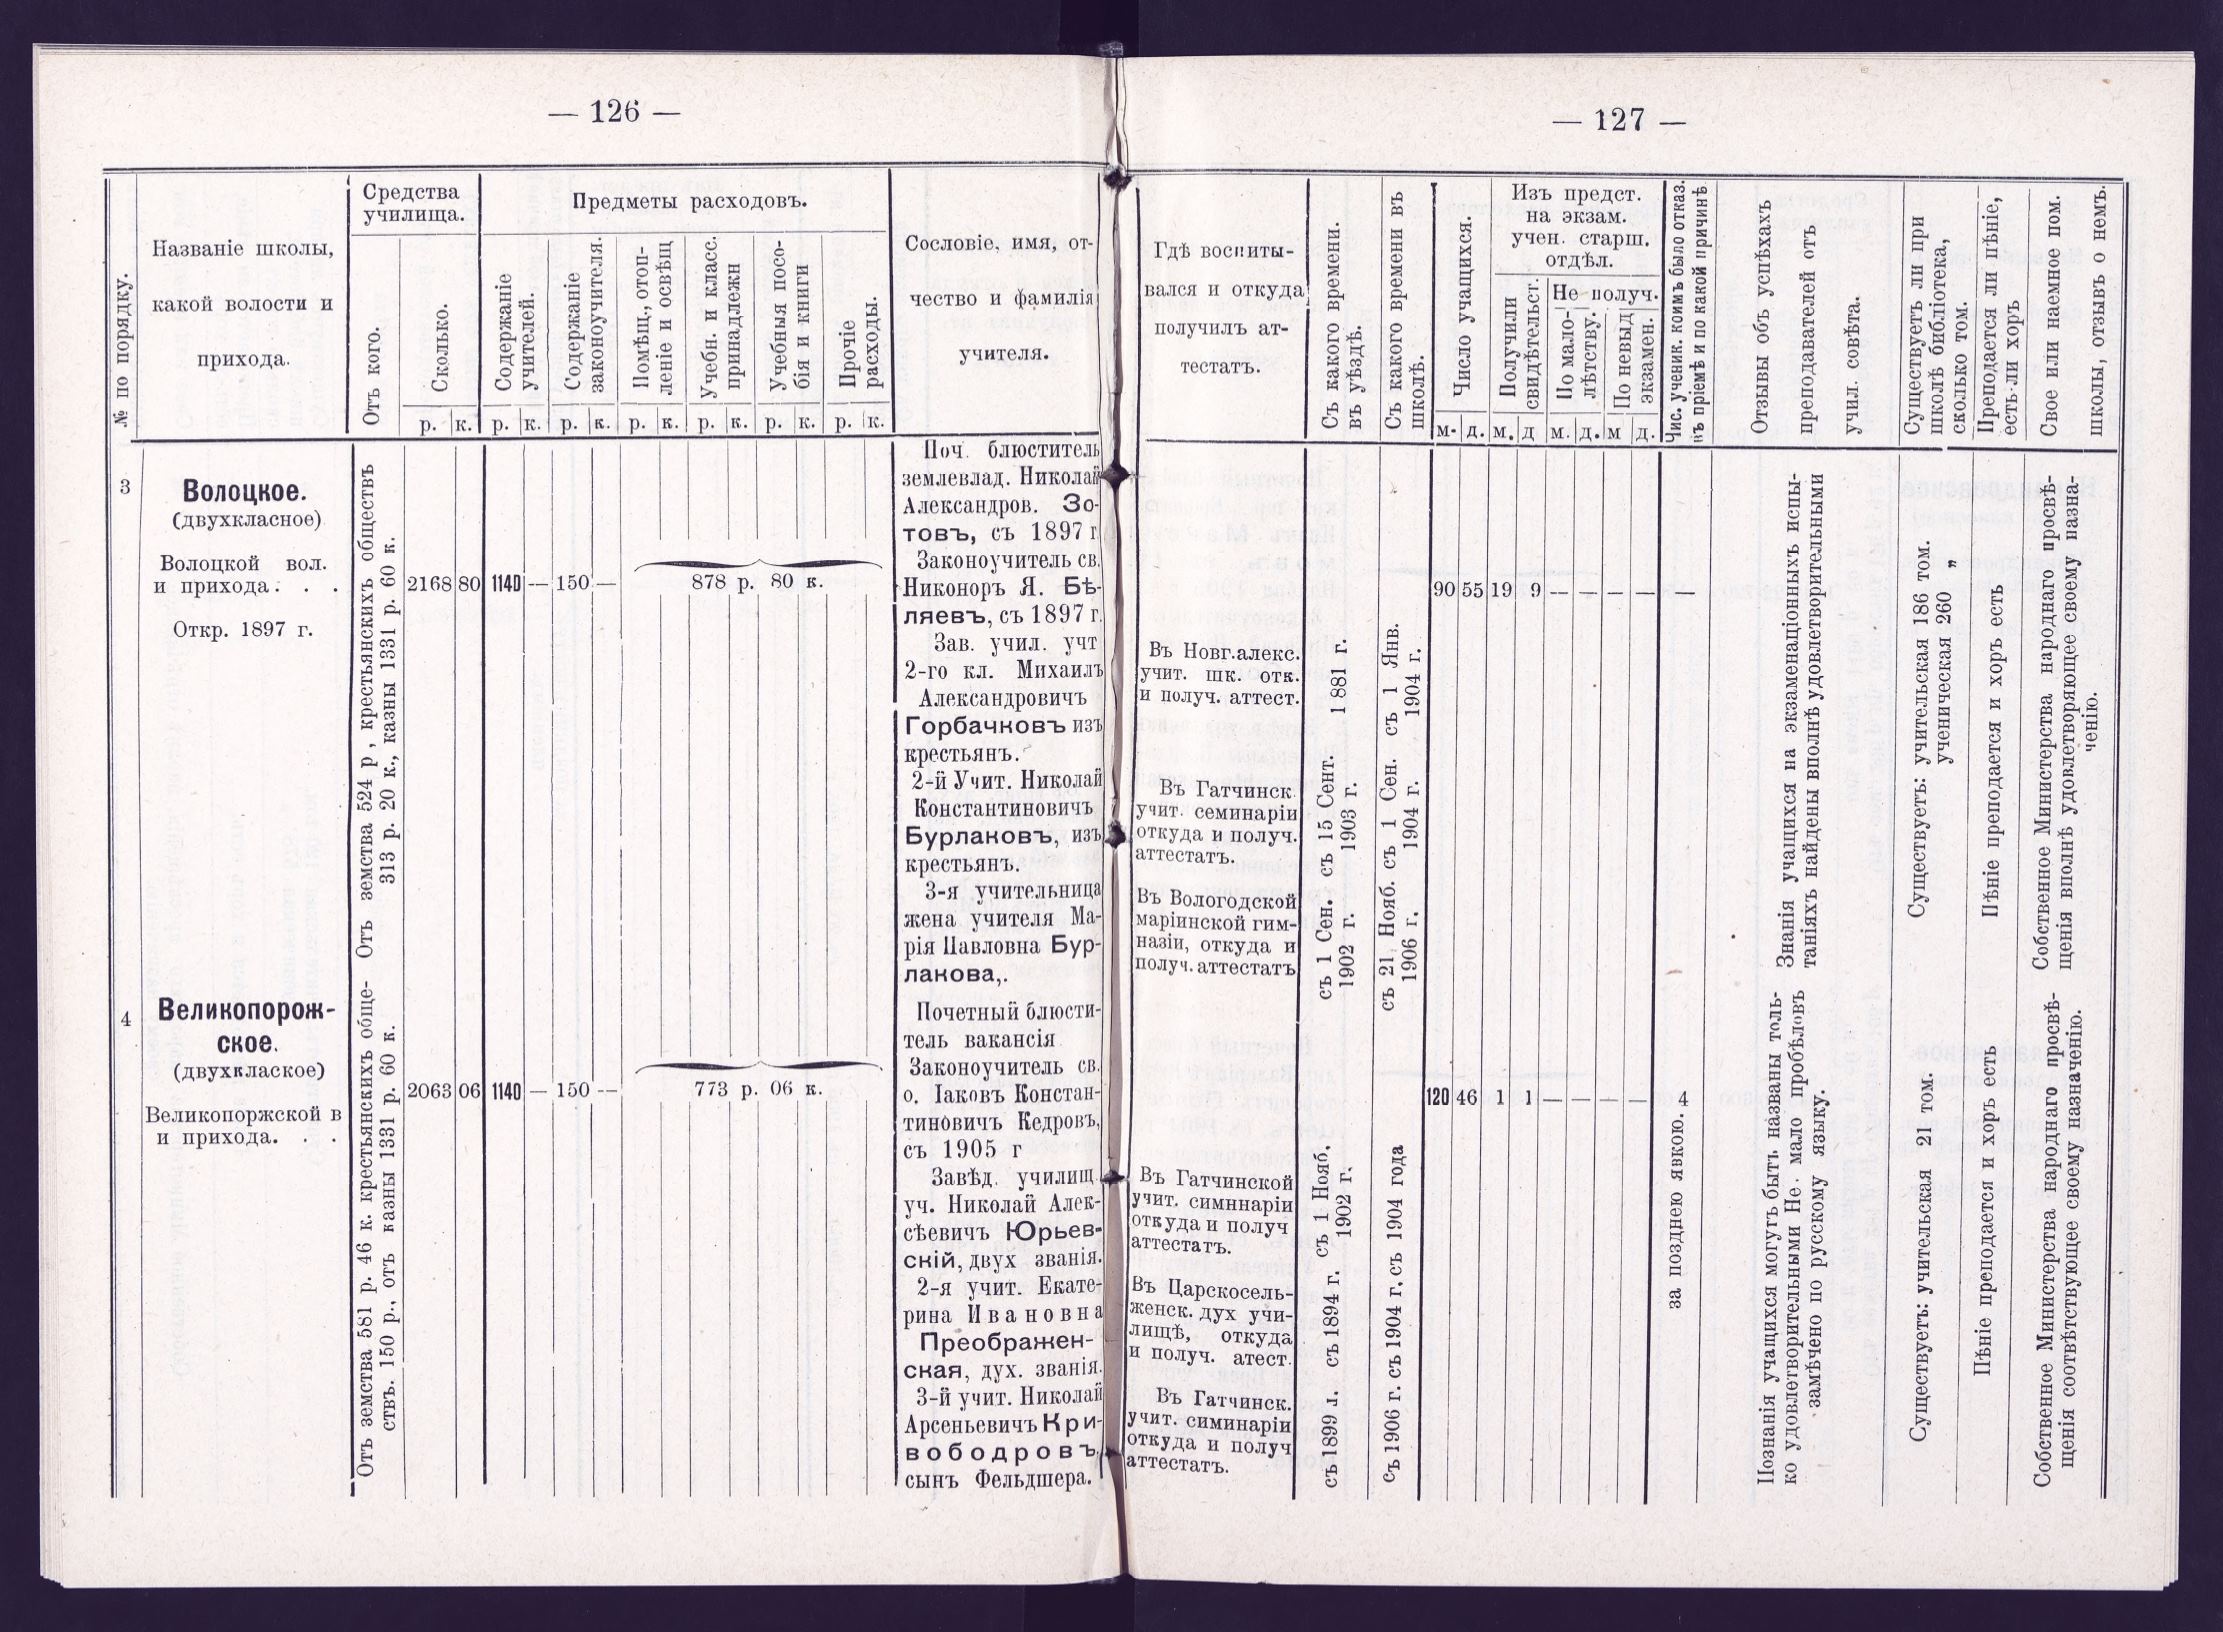 — 126 —
№ по порядку.
Названіе школы,
какой волости и
прихода.
Средства
училища.
Отъ кого.
Сколько.
р. к.
Предметы расходовъ.
Содержаніе
учителей.
р. к.
Содержаніе
законоучителя.
р. к.
Помѣщ., отоп-
леніе и освѣщ
р. к.
Учебн. и класс.
принадлежн
р. к.
Учебныя посо-
бія и книги
р. к.
Прочіе
расходы.
р. к.
Сословіе, имя, от-
чество и фамилія
учителя.
3
Волоцкое.
(двухкласное)
Волоцкой вол.
и прихода. . .
Откр. 1897 г.
Отъ земства 524 р , крестьянскихъ обществъ
313 р. 20 к., казны 1331 р. 60 к.
2168 80 1140 — 150 — 878 р. 80 к.
Поч. блюститель
землевлад. Николай
Александров. Зо-
товъ, съ 1897 г.
Законоучитель св.
Никоноръ Я. Бѣ-
ляевъ, съ 1897 г.
Зав. учил. учт
2-го кл. Михаилъ
Александровичъ
Горбачковъ изъ
крестьянъ.
2-й Учит. Николай
Константиновичъ
Бурлаковъ, изъ
крестьянъ.
3-я учительница
жена учителя Ма-
рія Павловна Бур-
лакова,.
4
Великопорож-
ское.
(двухклаское)
Великопоржской в
и прихода. . .
Отъ земства 581 р. 46 к. крестьянскихъ обще-
ствъ. 150 р., отъ казны 1331 р. 60 к.
2063 06 1140 — 150 — 773 р. 06 к.
Почетный блюсти-
тель вакансія
Законоучитель св.
о. Іаковъ Констан-
тиновичъ Кедровъ,
съ 1905 г
Завѣд. училищ.
уч. Николай Алек-
сѣевичъ Юрьев-
скій, двух званія.
2-я учит. Екате-
рина Ивановна
Преображен-
ская, дух. званія.
3-й учит. Николай
Арсеньевичъ Кри-
вободровъ,
сынъ Фельдшера.
— 127 —
Гдѣ воспиты-
вался и откуда
получилъ ат-
тестатъ.
Съ какого времени.
въ уѣздѣ.
Съ какого времени въ
школѣ.
Число учащихся.
м. д.
Изъ предст.
на экзам.
учен. старш.
отдѣл.
Получили
свидѣтельст.
м. д
Не получ.
По мало-
лѣтству.
м. д.
По невыд
экзамен.
м д.
Чис. ученик. коимъ было отказ.
въ пріемѣ и по какой причинѣ
Отзывы объ успѣхахъ
преподавателей отъ
учил. совѣта.
Существуетъ ли при
школѣ библіотека,
сколько том.
Преподается ли пѣніе,
есть-ли хоръ
Свое или наемное пом.
школы, отзывъ о немъ.
Въ Новг.алекс.
учит. шк. отк.
и получ. аттест.
1881 г.
съ 1 Янв.
1904 г.
Въ Гатчинск
учит. семинаріи
откуда и получ.
аттестатъ.
съ 15 Сент.
1903 г.
съ 1 Сен.
1904 г.
Въ Вологодской
маріинской гим-
назіи, откуда и
получ. аттестатъ
съ 1 Сен.
1902 г.
съ 21 Нояб.
1906 г.
90 55 19 9 — — — — —
Знанія учащихся на экзаменаціонныхъ испы-
таніяхъ найдены вполнѣ удовлетворительными
Существуетъ: учительская 186 том.
ученическая 260 „
Пѣніе преподается и хоръ есть
Собственное Министерства народнаго просвѣ-
щенія вполнѣ удовлетворяющее своему назна-
ченію.
Въ Гатчинской
учит. симннаріи
откуда и получ
аттестатъ.
съ 1 Нояб,
1902 г.
съ 1904 года
Въ Царскосель-
женск. дух учи-
лищѣ, откуда
и получ. атест.
съ 1894 г.
съ 1904 г.
Въ Гатчинск.
учит. симинаріи
откуда и получ
аттестатъ.
съ 1899 г.
съ 1906 г.
120 46 1 1 — — — — 4
за позднею явкою.
Познанія учащихся могутъ быть названы толь-
ко удовлетворительными Не. мало пробѣловъ
замѣчено по русскому языку.
Существуетъ: учительская 21 том.
Пѣніе преподается и хоръ есть
Собственное Министерства народнаго просвѣ-
щенія соотвѣтствующее своему назначенію.